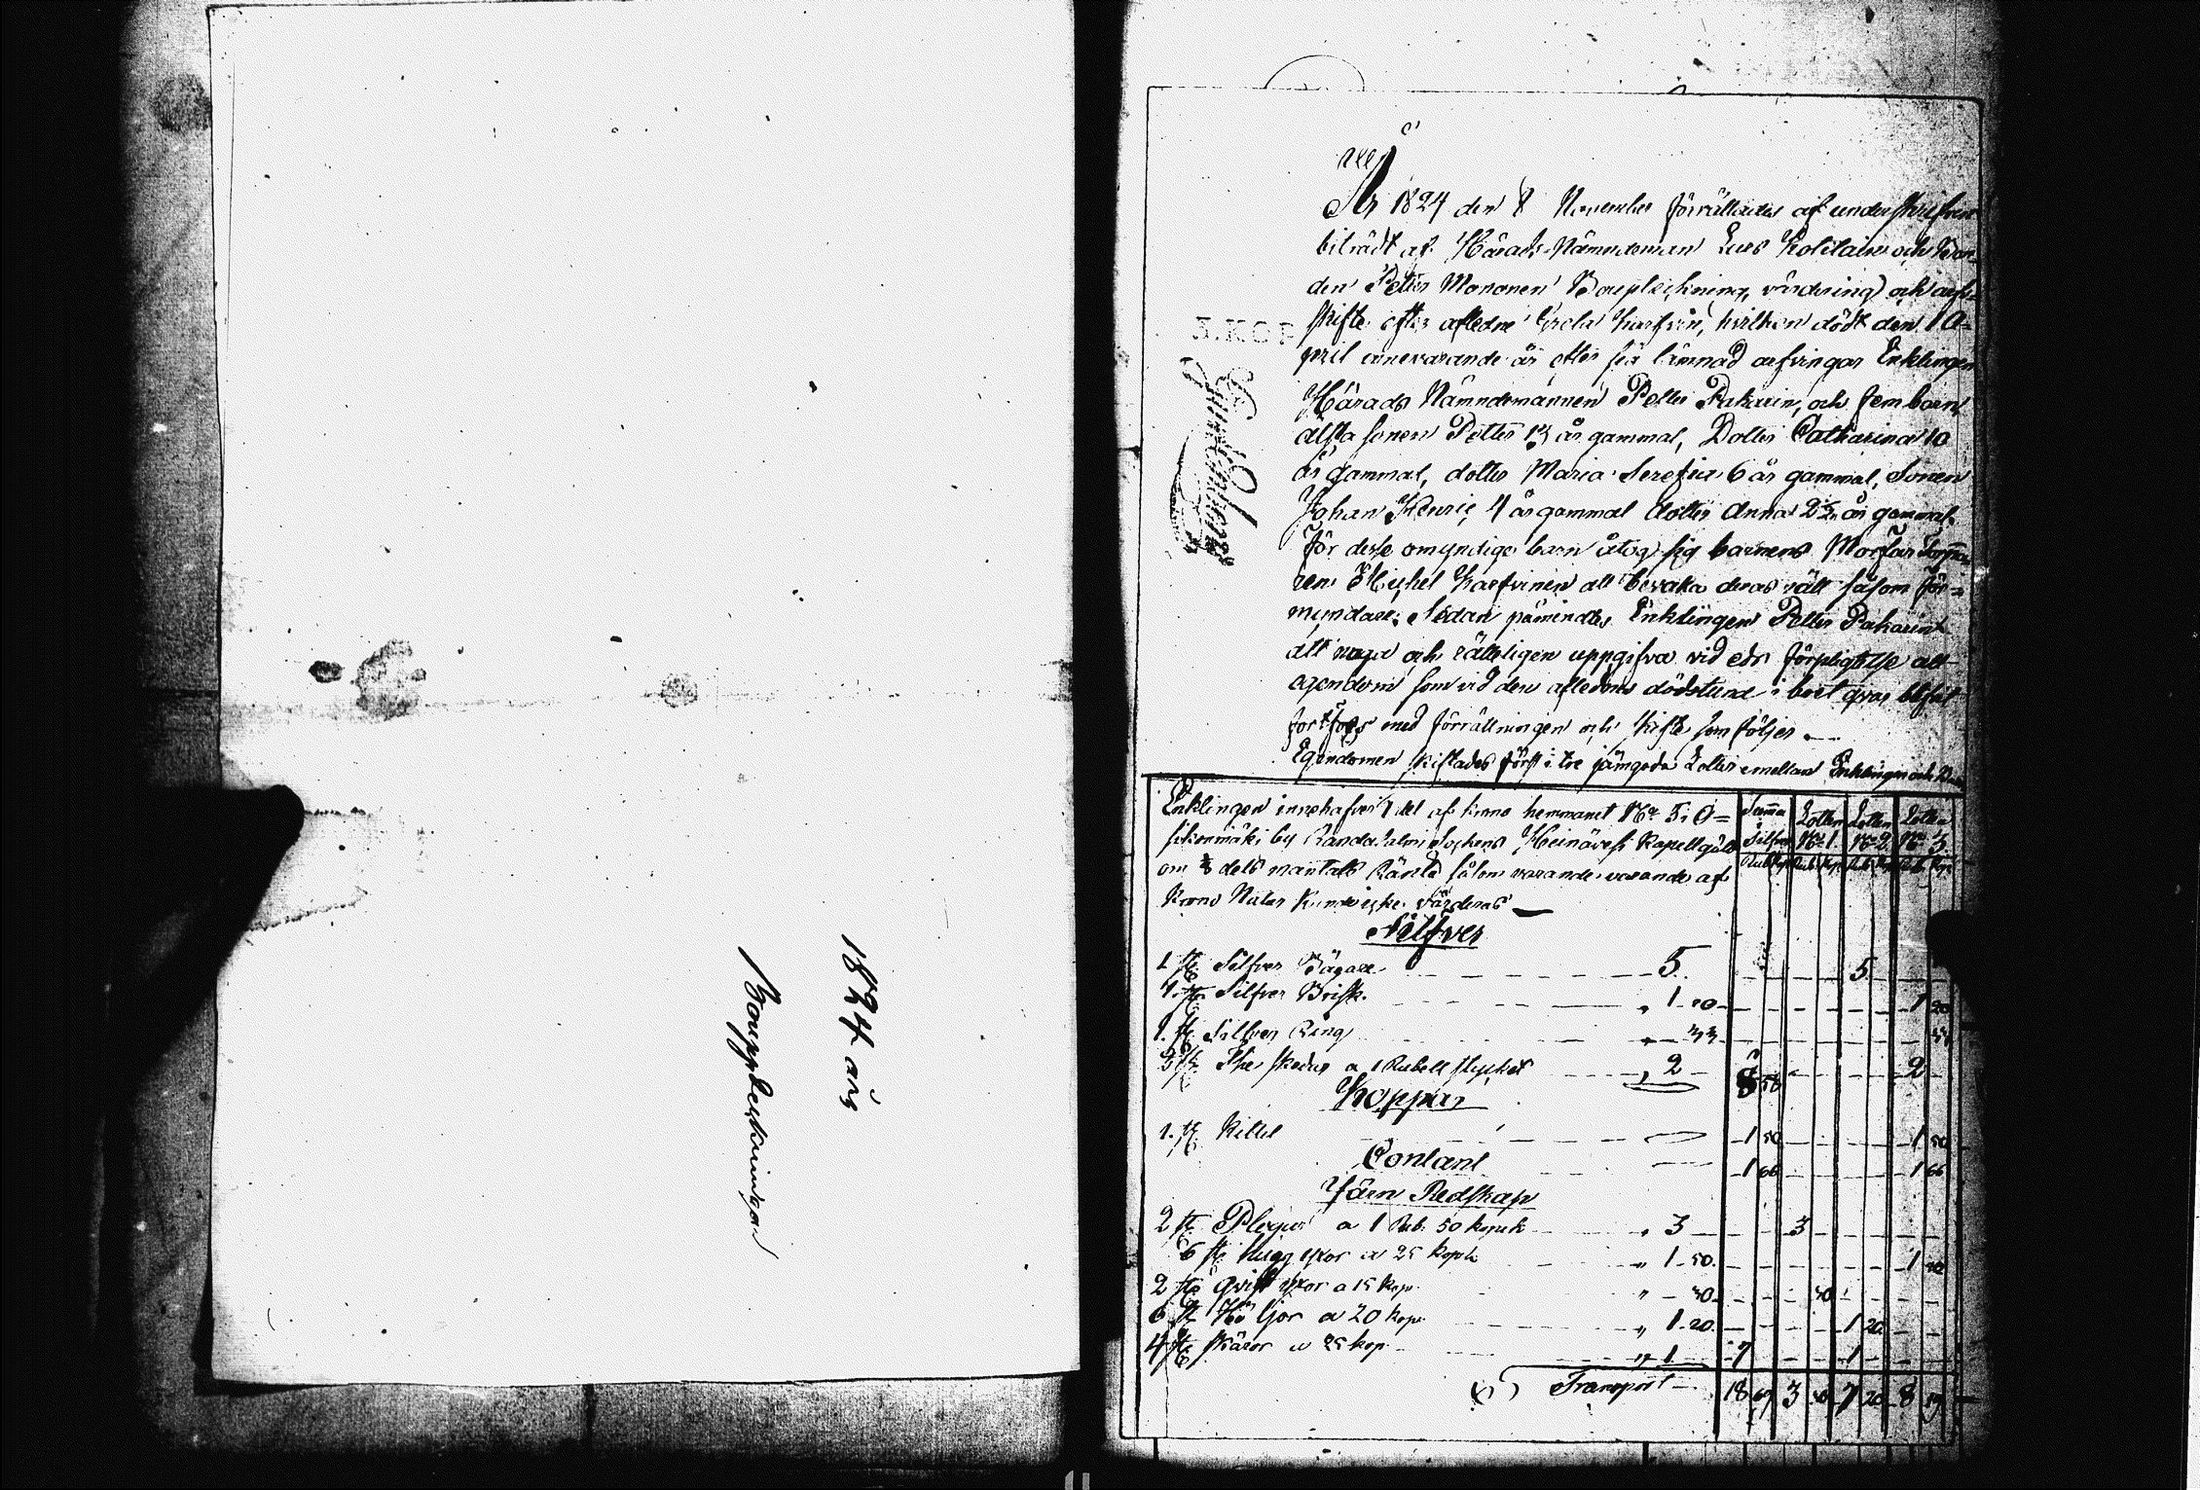 1824 års
Bouppteckningar
År 1824 den 8 November förrättades af underskrifven
biträdt af Härads Nämndeman Lars Kolilain och Bon-
den Petter Mononen Bouppteckning, värdering och arf-
skifte efter afledne Greta Karfvin, hvilken dödt den 1 A=
pril innevarande år efter sig lämnad arfvingar Enklingen
Härads Nämndemannen Petter Pakarin, och fem barn,
älsta sonen Petter 13 år gammal, Dotter Catharina 10
år gammal, dotter Maria Serefia 6 år gammal, Sonen
Johan Henric 4 år gammal dotter Anna 2½ år gammal.
För desse omyndige barn åtog sig barnens Morfar
Michel Karfvinen att bevaka deras rätt såsom för=
myndare; Sedan påmindes Enklingen Petter Pakarin
att noga och rätteligen uppgifva vid eds förpligtelse all
egendom som vid den afledens dödstund i boet qvar blifvit
med förrättningen och skifte som följer
Egendomen skiftades först i tre jämgoda Lotter emellan Enklingen och
3.KOP
Enklingen innehafver 1 del af krono hemmanet No 5 i O=
sikonmäki by Randasalmi Sockens Heinävesi Kapellgäld
om dels mantals Ränta såsom varande varande af
Krono Natur kunde icke värderas
Summa Silfver Rub Kop
Lotten No 1. Rub Kop
Lotten No 2 Rub Kop
Lotten No 3 Rub Kop
Silfver
1 st Silfver Bägare 5. 5
1. st Silfver Brisk. 1 20 1 20
1. st Silfver Ring 33 33
2 st The skedar a 1 Rubell stycket 2 8 53 2
Koppar
1. st Kittel 1 50 1 50
Contant 1 66 1 66
Järn Redskap
2 st Plogar a 1 Rub. 50 kopek 3 3
6 st hugg yxor a 25 Kopek 1 50. 1 50
2 st qvist yxor a 15 Kop 30 30
6 st Hö ljor a 20 kop 1 20 1 20
4 st skäror a 25 kop 1 7 1
Transport 18 69 3 30 7 20 8 19